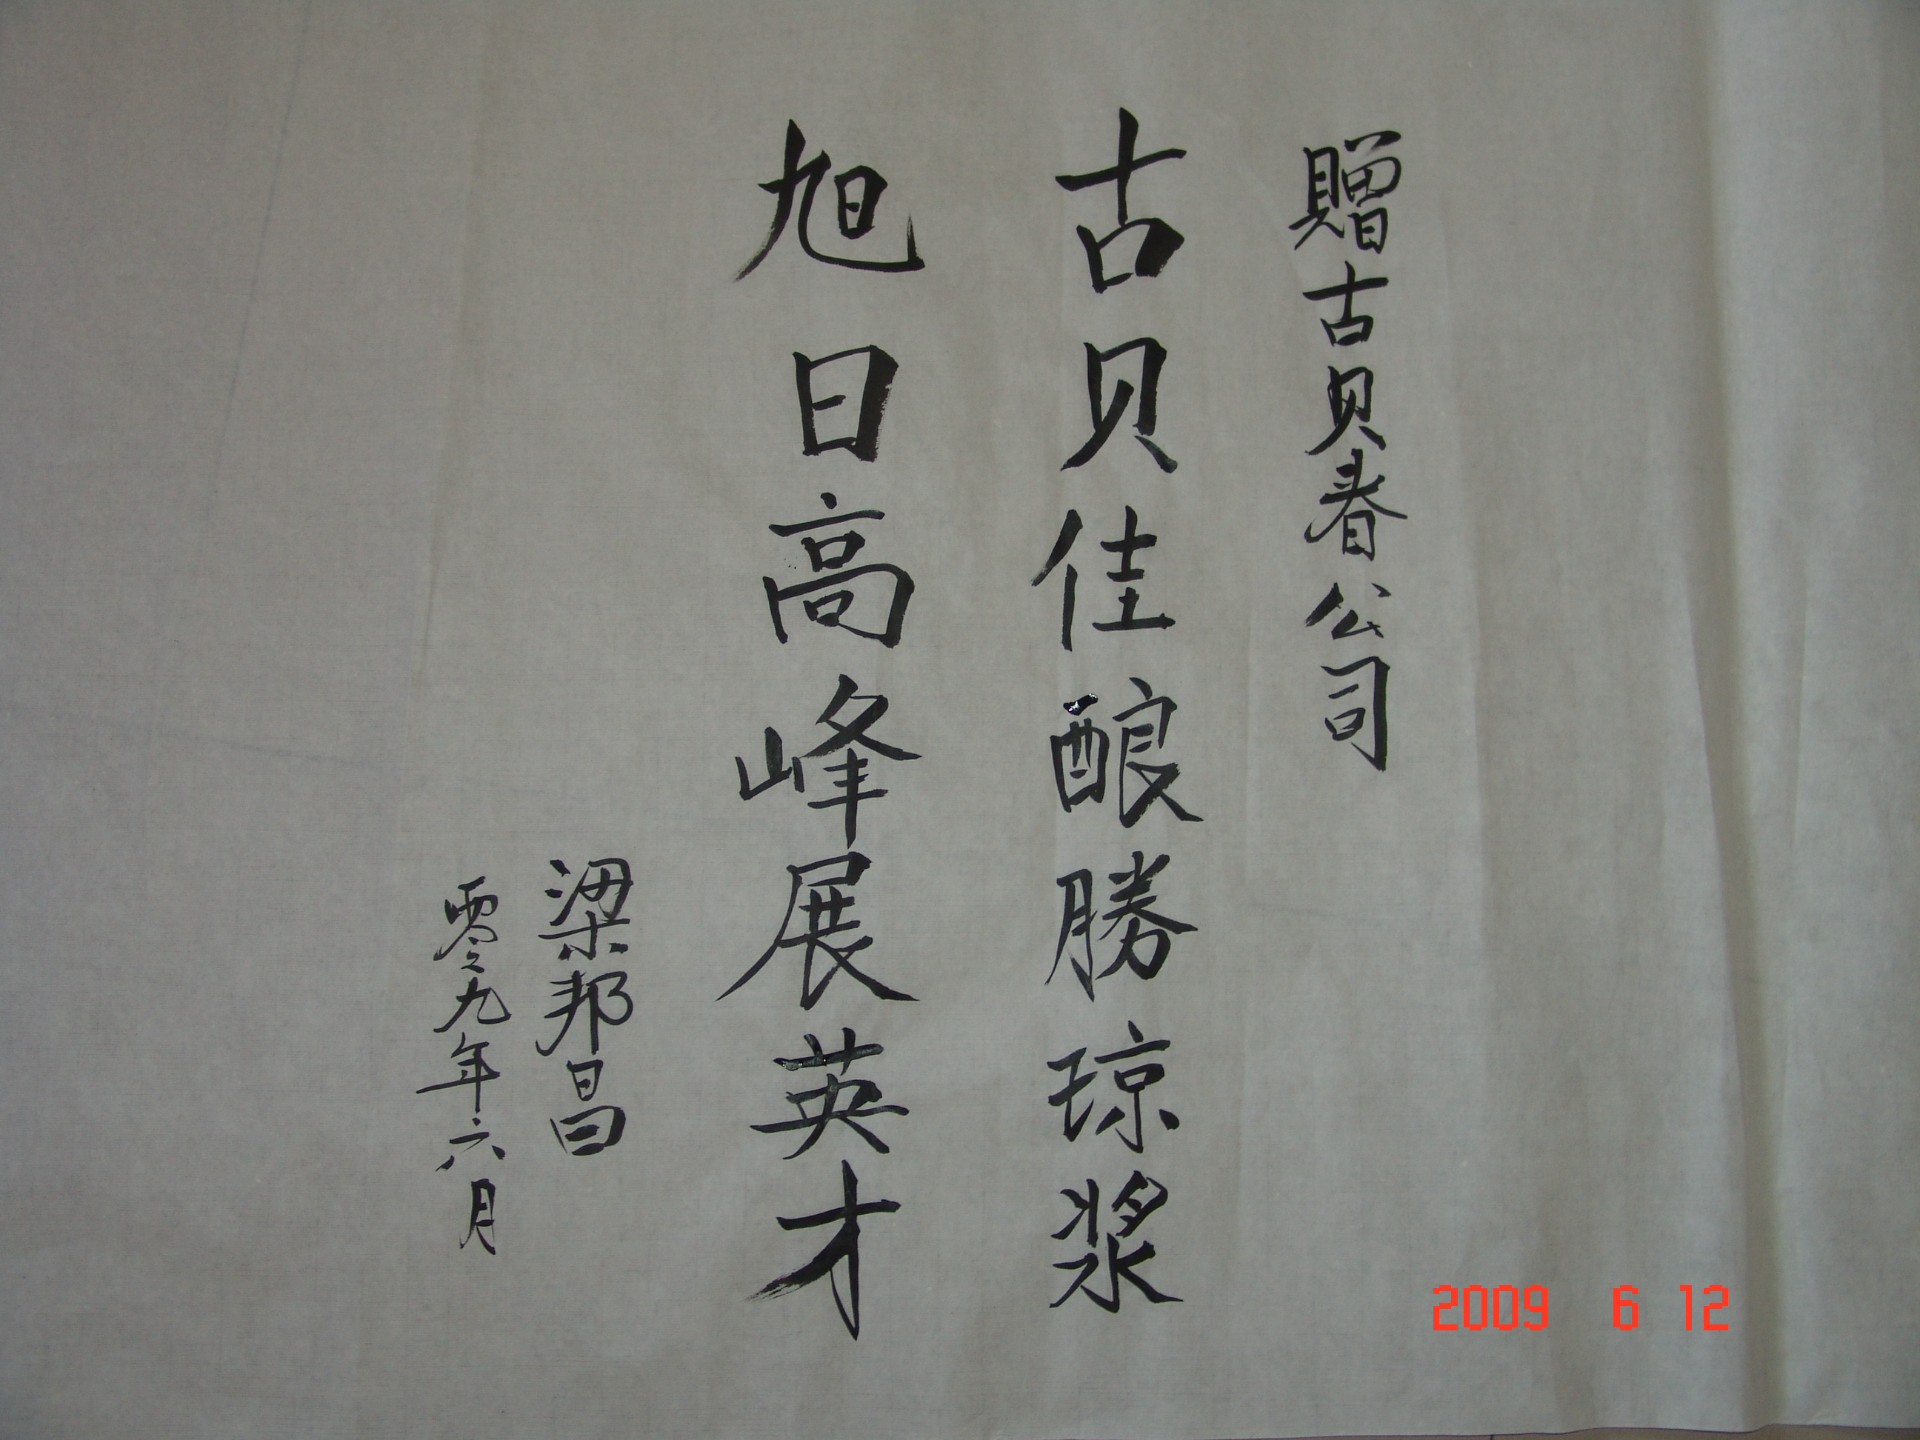 贈古贝春公司
古贝佳酿勝琼浆
旭日高峰展英才
梁邦昌
零九年六月
2009 6 12